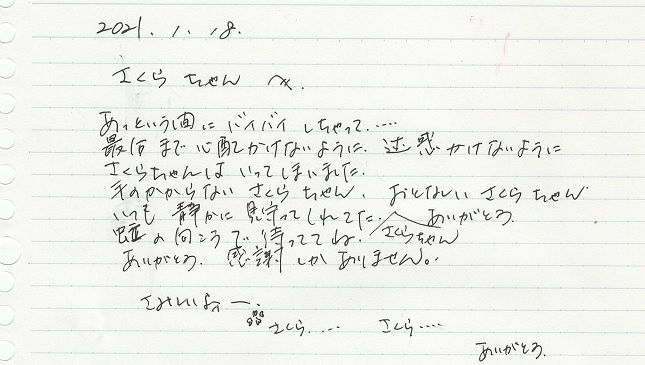 2021.1.18.
さくらちゃんへ.
あっという間にバイバイしちゃって.....
最后まで心配かけないように.迷惑かけないように
さくらちゃんはいってしまいました.
手のかからないさくらちゃん.おとなしいさくらちゃん
いつも静かに見守ってくれてた.ありがとう.
虹の向こうで待っててね.さくらちゃん
ありがとう.感謝しかありません。.
さみしいよー.
さくら.... さくら....
ありがとう.